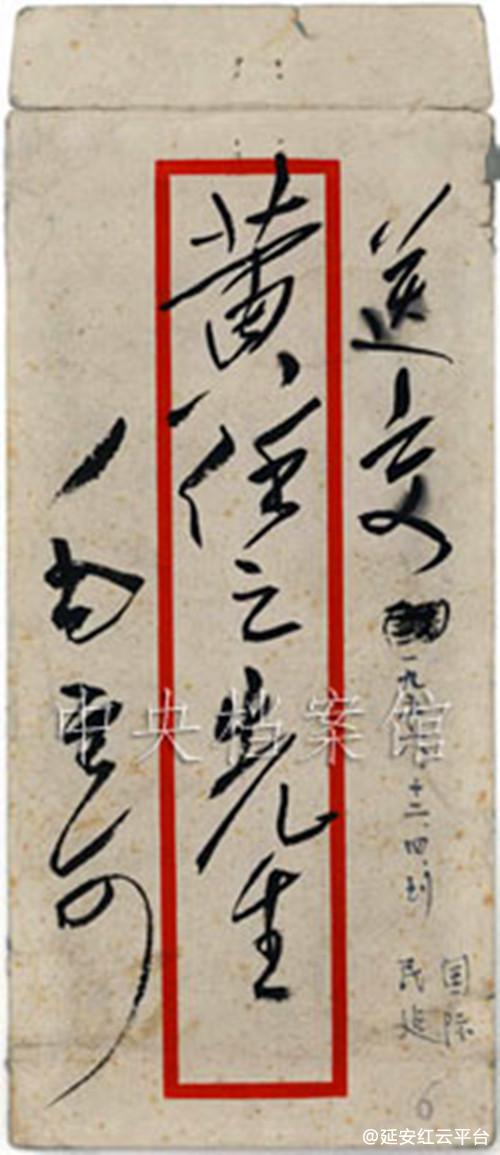 送交
一九五六、十二、四、到
国际
民建
6
黄任之先生
中央档案馆
@延安红云平台